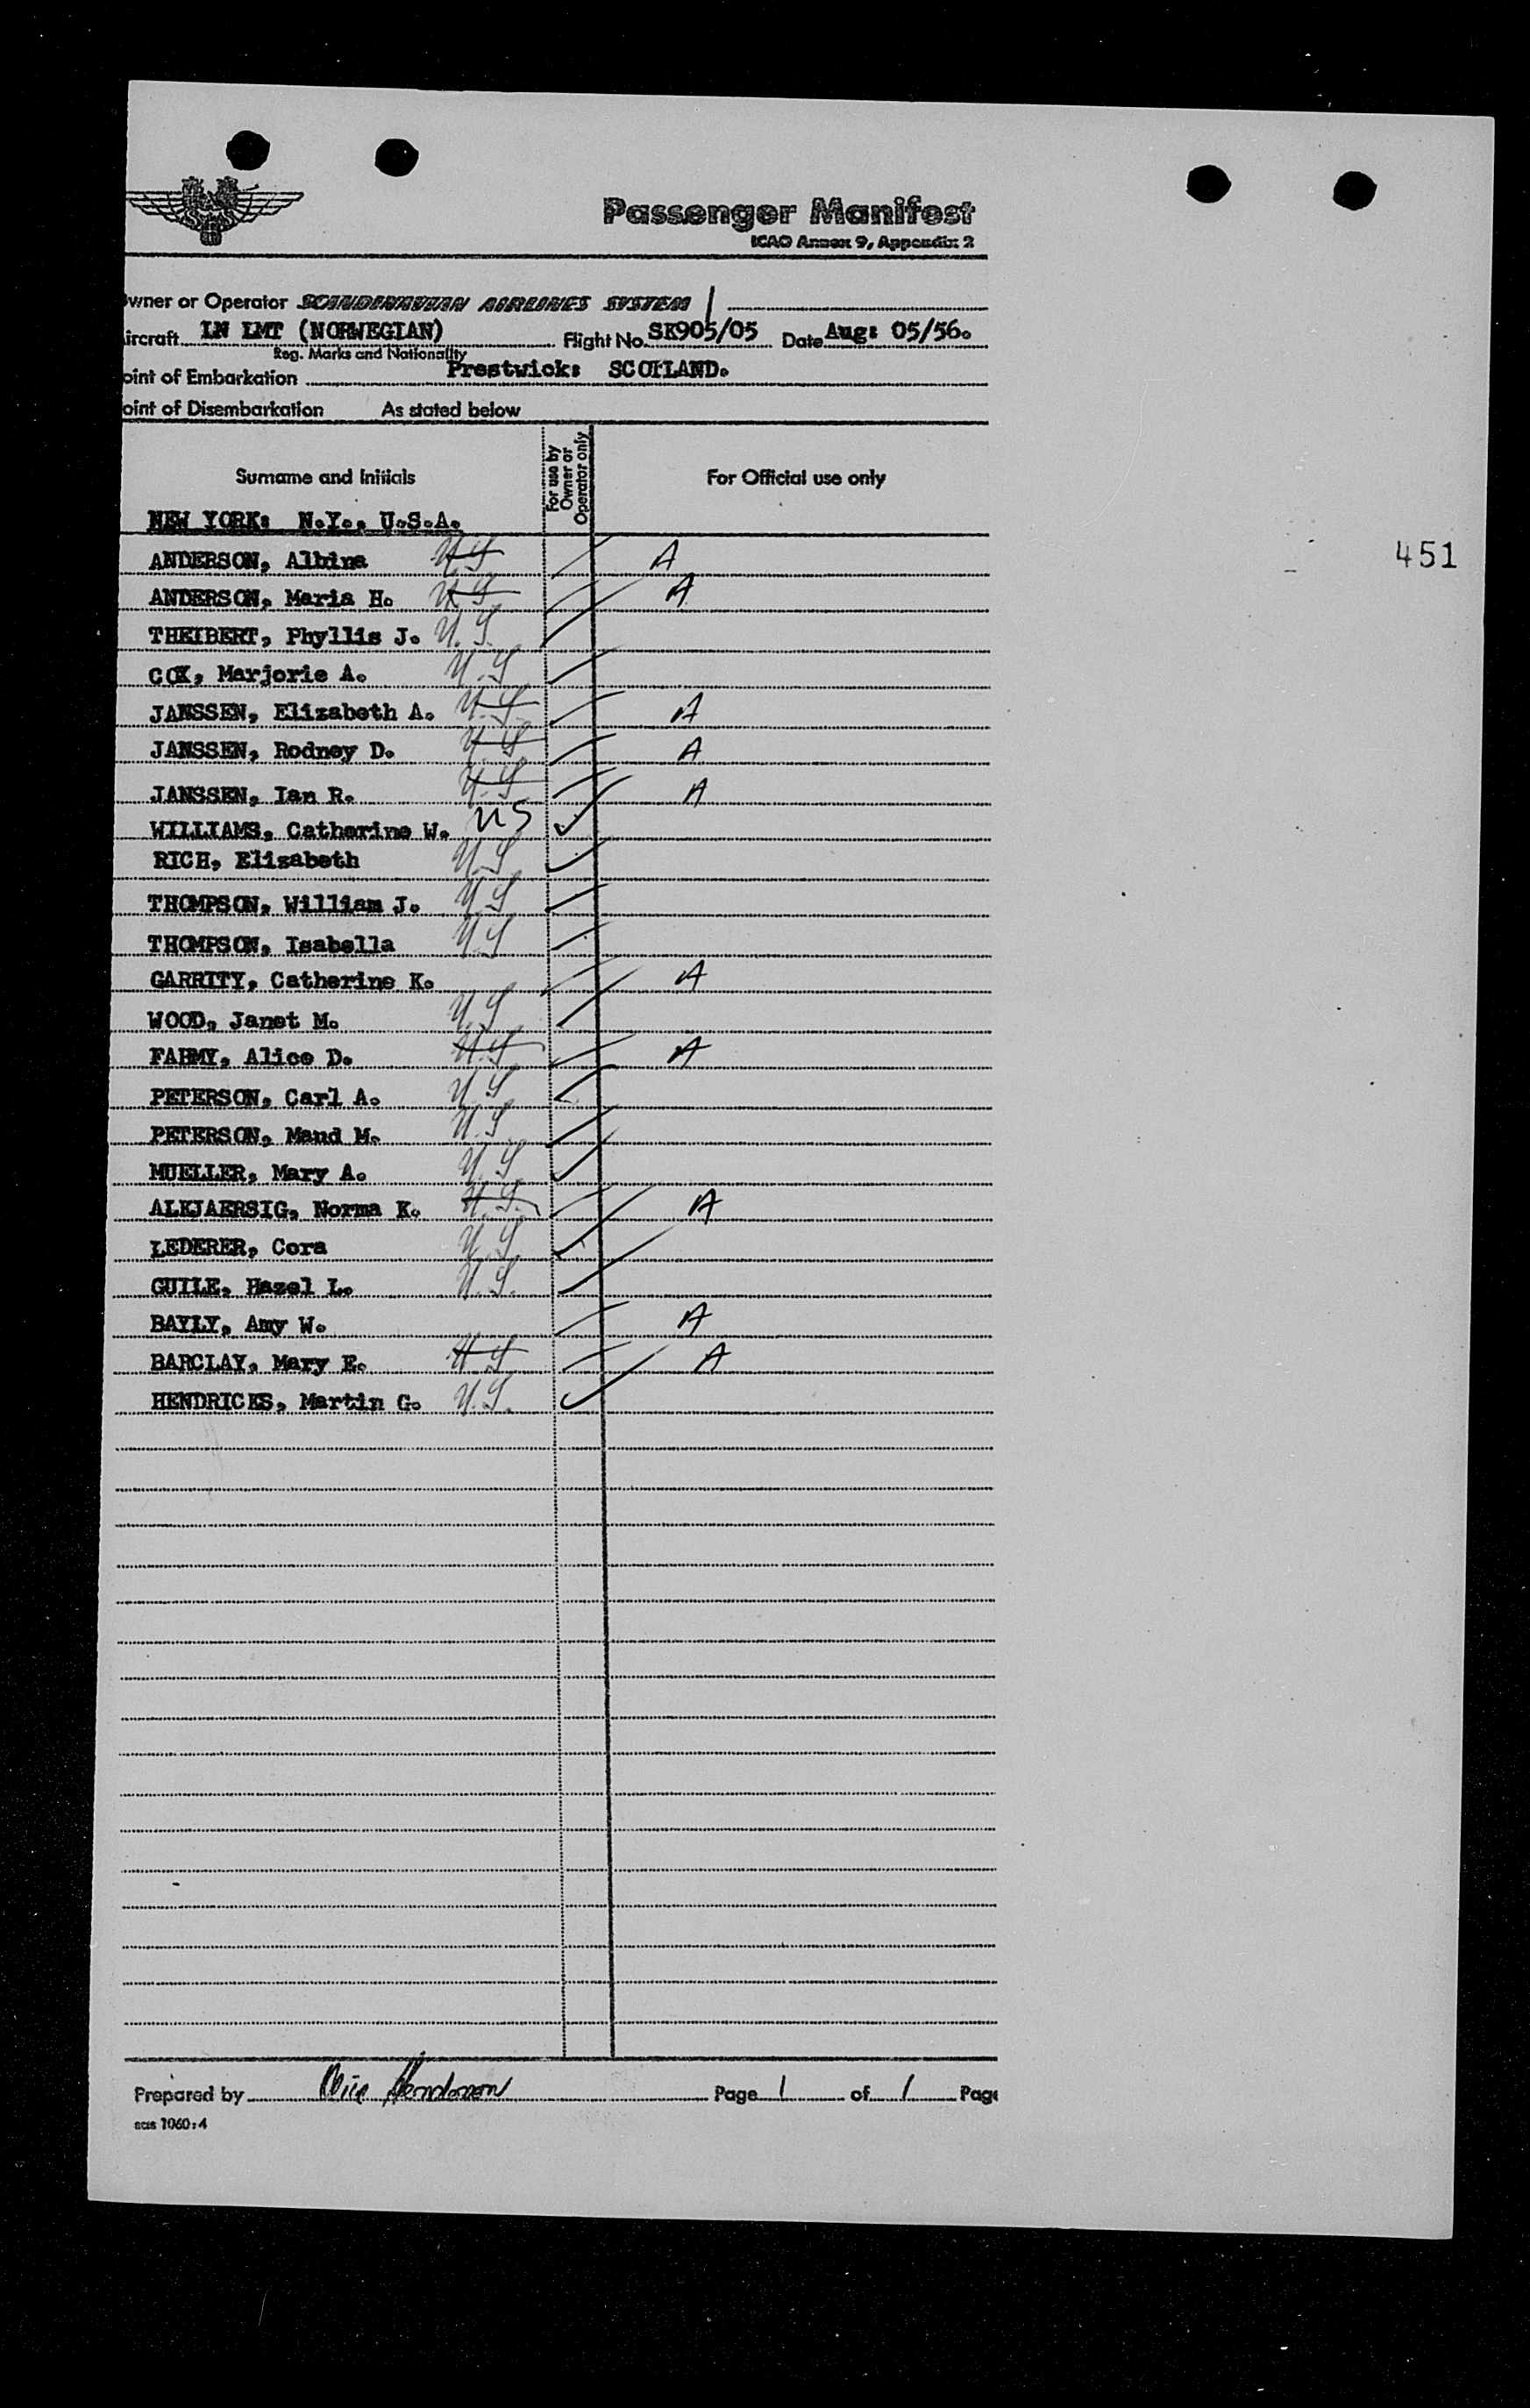 Passenger Manifest
ICAO Annex 9, Appendix 2
wner or Operator SCANDINAVIAN AIRLINES SYSTEM
ircraft LN LMT (NORWEGIAN) Flight No. SK905/05 Date Aug: 05/56.
Reg. Marks and Nationality
oint of Embarkation Prestwick: SCOTLAND.
oint of Disembarkation As stated below
Surname and Initials For use by Owner or Operator only For Official use only
NEW YORK: N.Y., U.S.A.
ANDERSON, Albina U.S A
451
ANDERSON, Maria H. U.S A
THEIBERT, Phyllis J. U.S.
COX, Marjorie A. U.S
JANSSEN, Elizabeth A. U.S. A
JANSSEN, Rodney D. U.S A
JANSSEN, Ian R. U.S A
WILLIAMS, Catherine W. US
RICH, Elisabeth U.S
THOMPSON, William J. U.S
THOMPSON, Isabella U.S
GARRITY, Catherine K. A
WOOD, Janet M. U.S
FAHMY, Alice D. U.S A
PETERSON, Carl A. U.S
PETERSON, Maud M. U.S.
MUELLER, Mary A. U.S
ALKJAERSIG, Norma K. U.S. A
LEDERER, Cora U.S.
GUILE, Hazel L. U.S.
BAYLY, Amy W. A
BARCLAY, Mary E. U.S A
HENDRICKS, Martin G. U.S.
Prepared by Henderson Page 1 of 1 Page
sas 1060:4